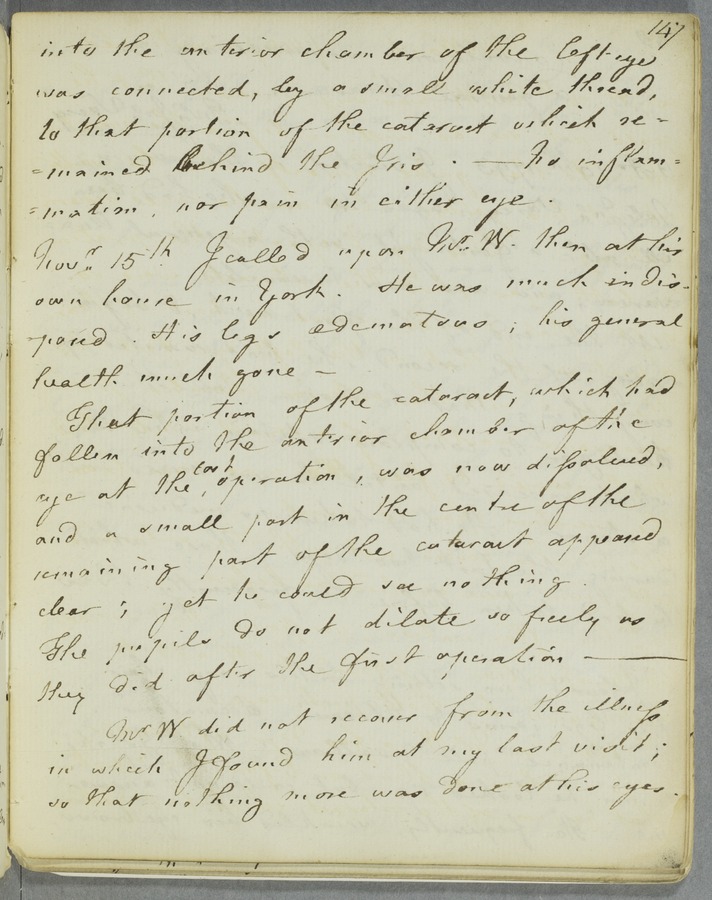 147
into the anterior chamber of the left eye
was connected, by a small white thread,
to that portion of the cataract which re=
=mained behind the Iris . — No inflam=
=mation, nor pain in either eye .
Novr. 15th. I called upon Mr. W. then at his
own house in York . He was much indis-
-posed . His legs edematous ; his general
health much gone —
That portion of the cataract, which had
fallen into the anterior chamber of the
eye at the last operation, was now dissolved,
and a small part in the centre of the
remaining part of the cataract appeared
clear ; yet he could see nothing .
The pupils do not dilate so freely as
they did after the first operation —
Mr. W did not recover from the illness
in which I found him at my last visit ;
so that nothing more was done at his eyes .